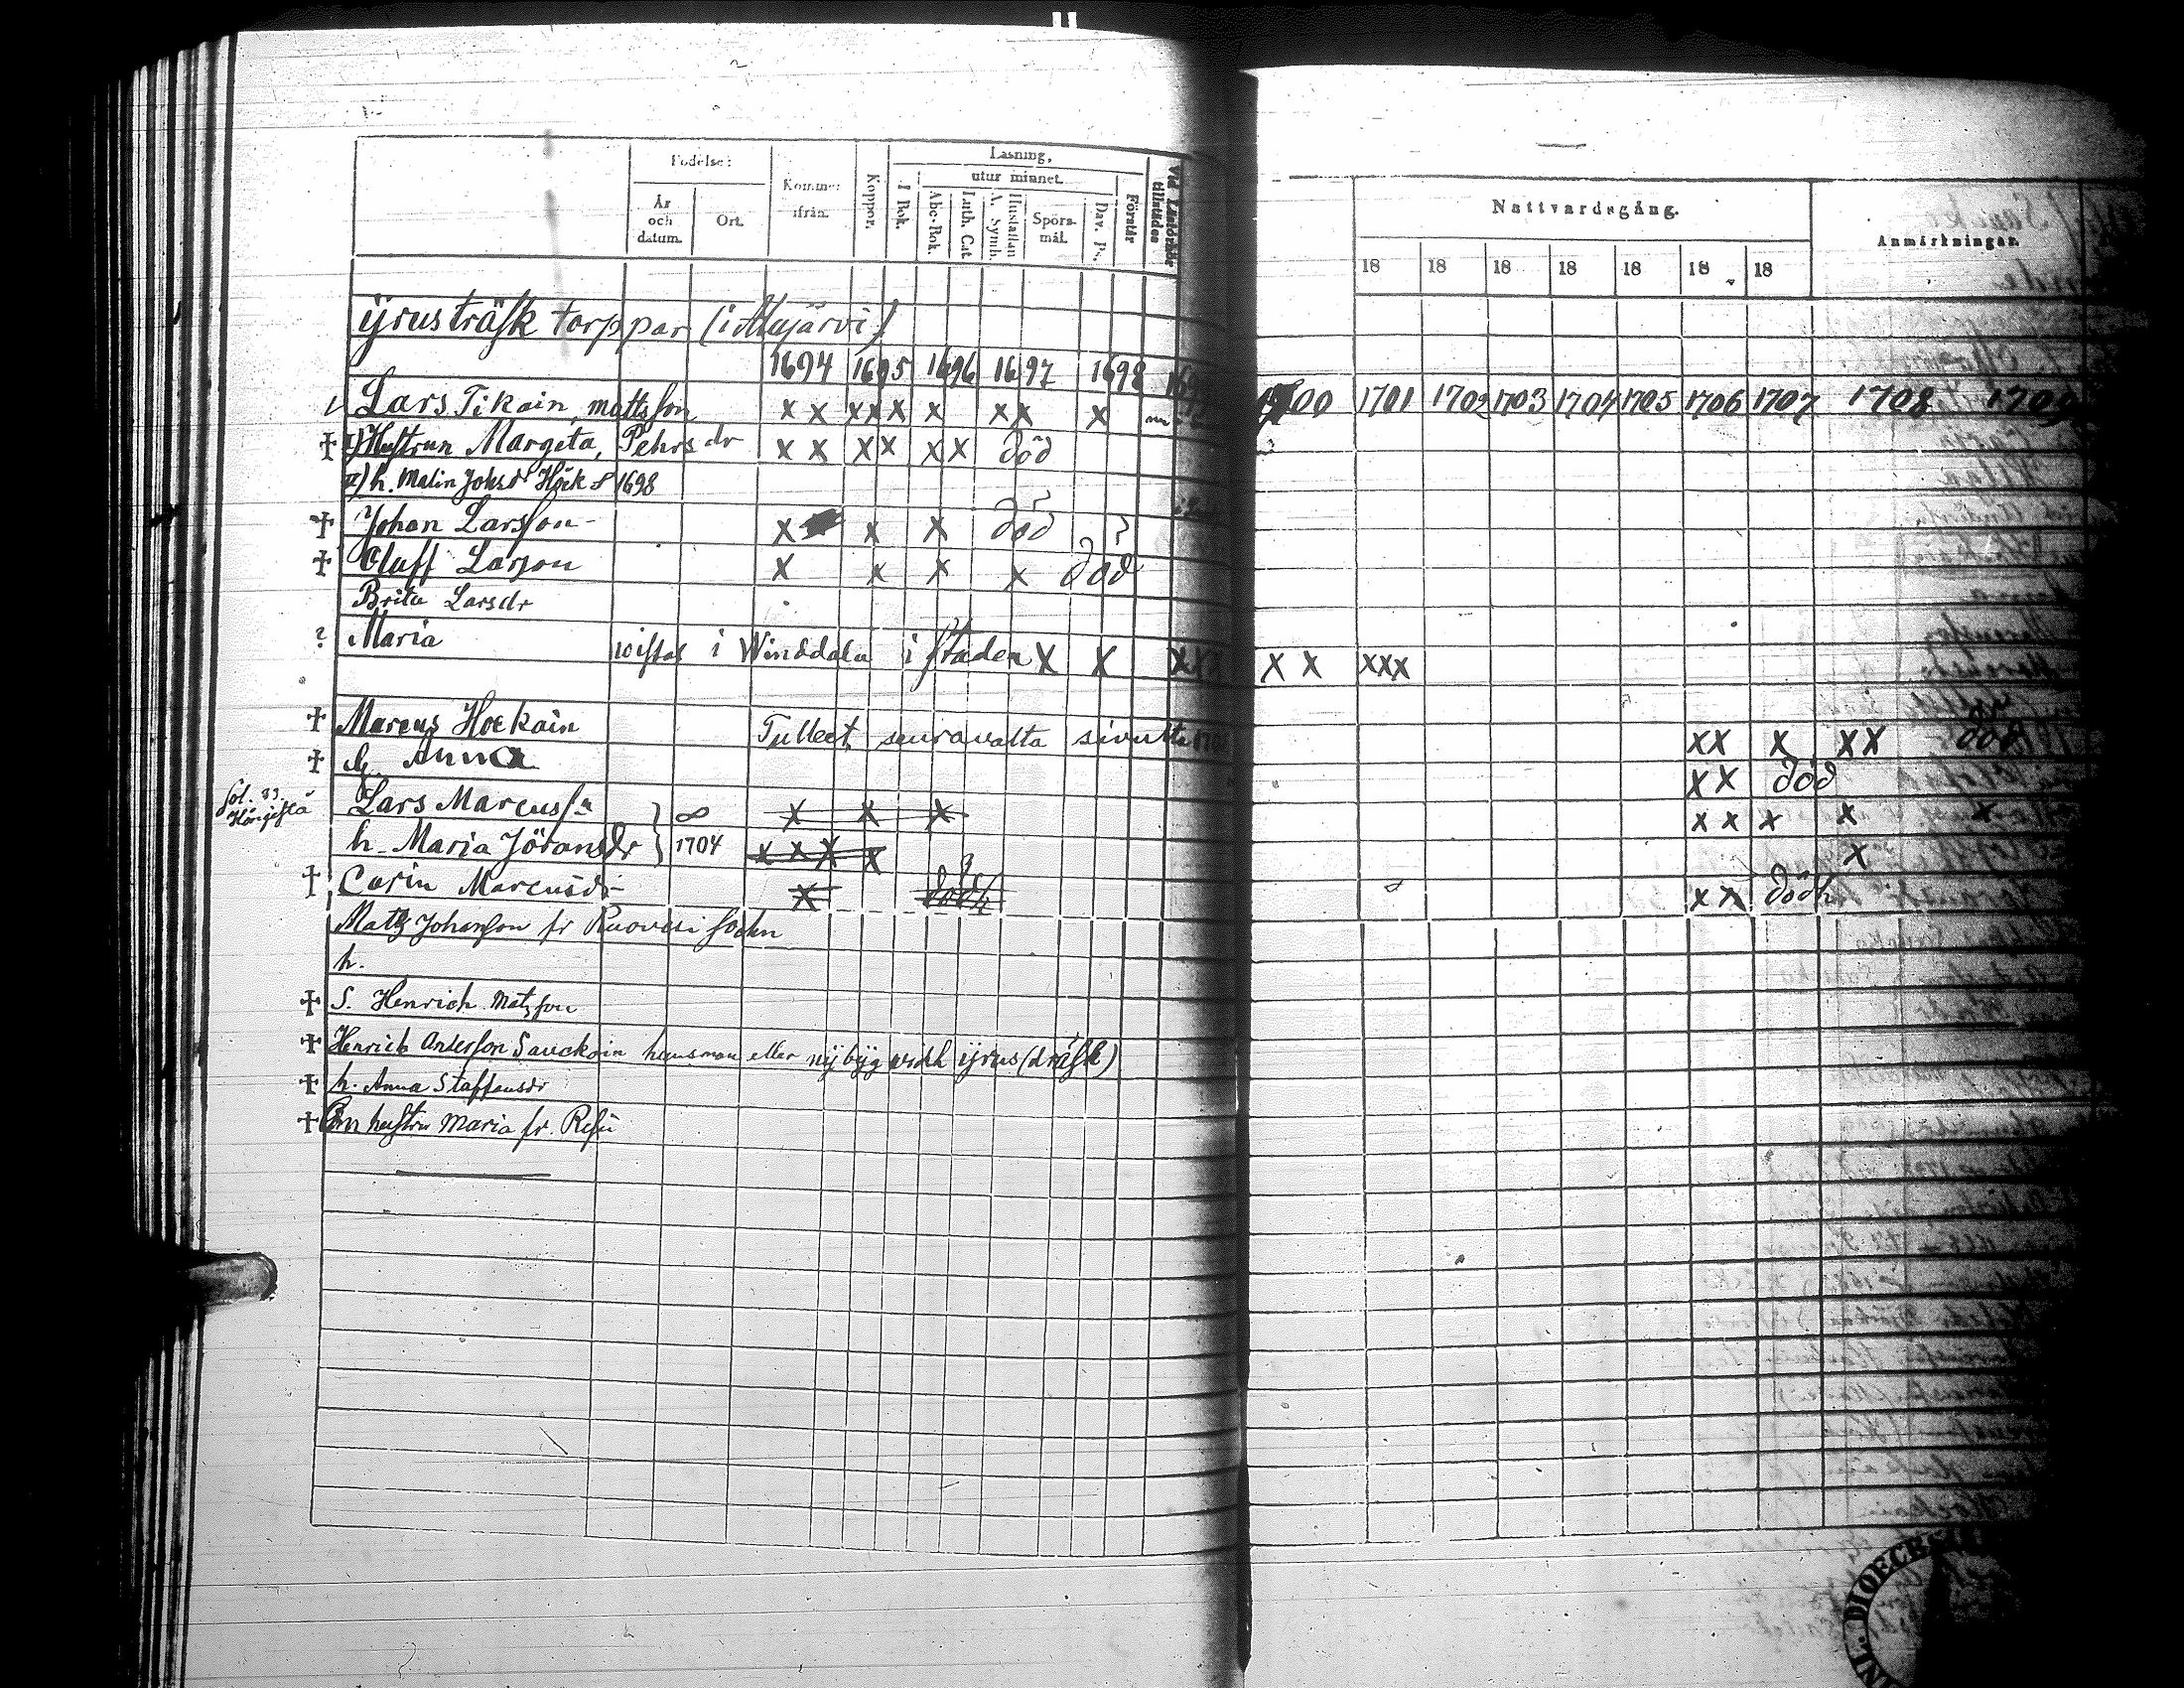 Födelse:
Läsning,
utur minnet.
År och datum.
Ort.
Kommer ifrån.
Koppor.
I Bok.
Abc-Bok.
Luth. Cat
Hustaflan A. Symb.
Spörs-mål.
Dav. Ps.
Förstår
Vid Läsförhör tillstädes
Nattvardsgång.
Anmärkningar.
18 18 18 18 18 18 18
ijrusträsk torppar (i Alajärvi)
1694 1695 1696 1697 1698 1700 1701 1702 1703 1704 1705 1706 1707 1708 1709
Lars Tikain mattsson x x x x x x x x x
† I) Hustrun Margeta, Pehrs dr x x x x x x död
II) h. Malin Johsdr Höök ∞ 1698
† Johan Larsson x x x död
† Oluff Larson x x x x död
Brita Larsdr
? Maria wistas i Winddala i staden x x x x x x x x x x
† Marcus Hoekain Tulleet seuravalta sivulta x x x x x död
† h. Anna x x död
fol. 83. Lars Marcus sn ∞ x x x x x x x x
h. Maria Jöransdr 1704 x x x x x
† Carin Marcusdr x dödh x x dödh
Matz Johansson fr Ruovesi sochn
h.
† S. Henrich Matzson
† Henrich Andersson Sauckoin husman eller nÿbÿg widh ijrus(dräsk)
† h. Anna Staffansdr
† Em hustru Maria fr.
DIOECES